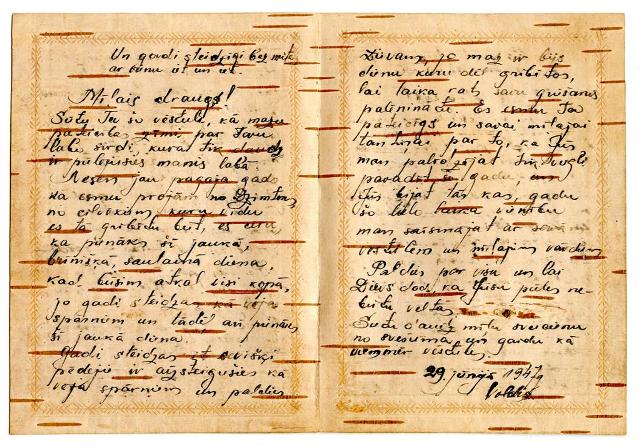 Un gardi steidzīgi bez mitē
ar vienu iet un iet.
Milais draugs!
Sūtu Tev šo vēstuli, kā mazu
pateicības zīmi par Tavu
labo sirdi, kura tik daudz
ir pūlējusies manis labā.
Nesen jau pagāja gads
kā esmu projām no Dzimtenes
no cilvēkiem, kuru vidū
es tā gribētu būt, es ceru,
ka pienāks šī jaukā,
brīnišķā, saulainā diena,
kad būsim atkal visi kopā,
jo gadi steidzas kā vēja
spārniem un tādēļ arī pienāks
šī jaukā diena.
Gadi steidzas it sevišķi
pēdējie ir aizsteigušies kā
vēja spārniem un paldies
Dievam, jo maz ir bijis
dienu kuru dēļ gribētos,
lai laika rats savu griešanos
palēninātu. Es esmu Ta
pateicīgs un savai mīļajai
par to, ka Jūs
man
gadu,
Jūs bijāt tās kas, gadu
šo lielo laika vienību
man saīsinājāt ar savām
vēstulēm un mīļajiem vārdiem
Paldies par visu un lai
Dievs dod, ka Jūsu pūles ne-
būtu veltas.
Sūtu daudz mīļu sveicienu
no svešuma un gaidu kā
vienmēr vēstules.
29. jūnijā 1947g